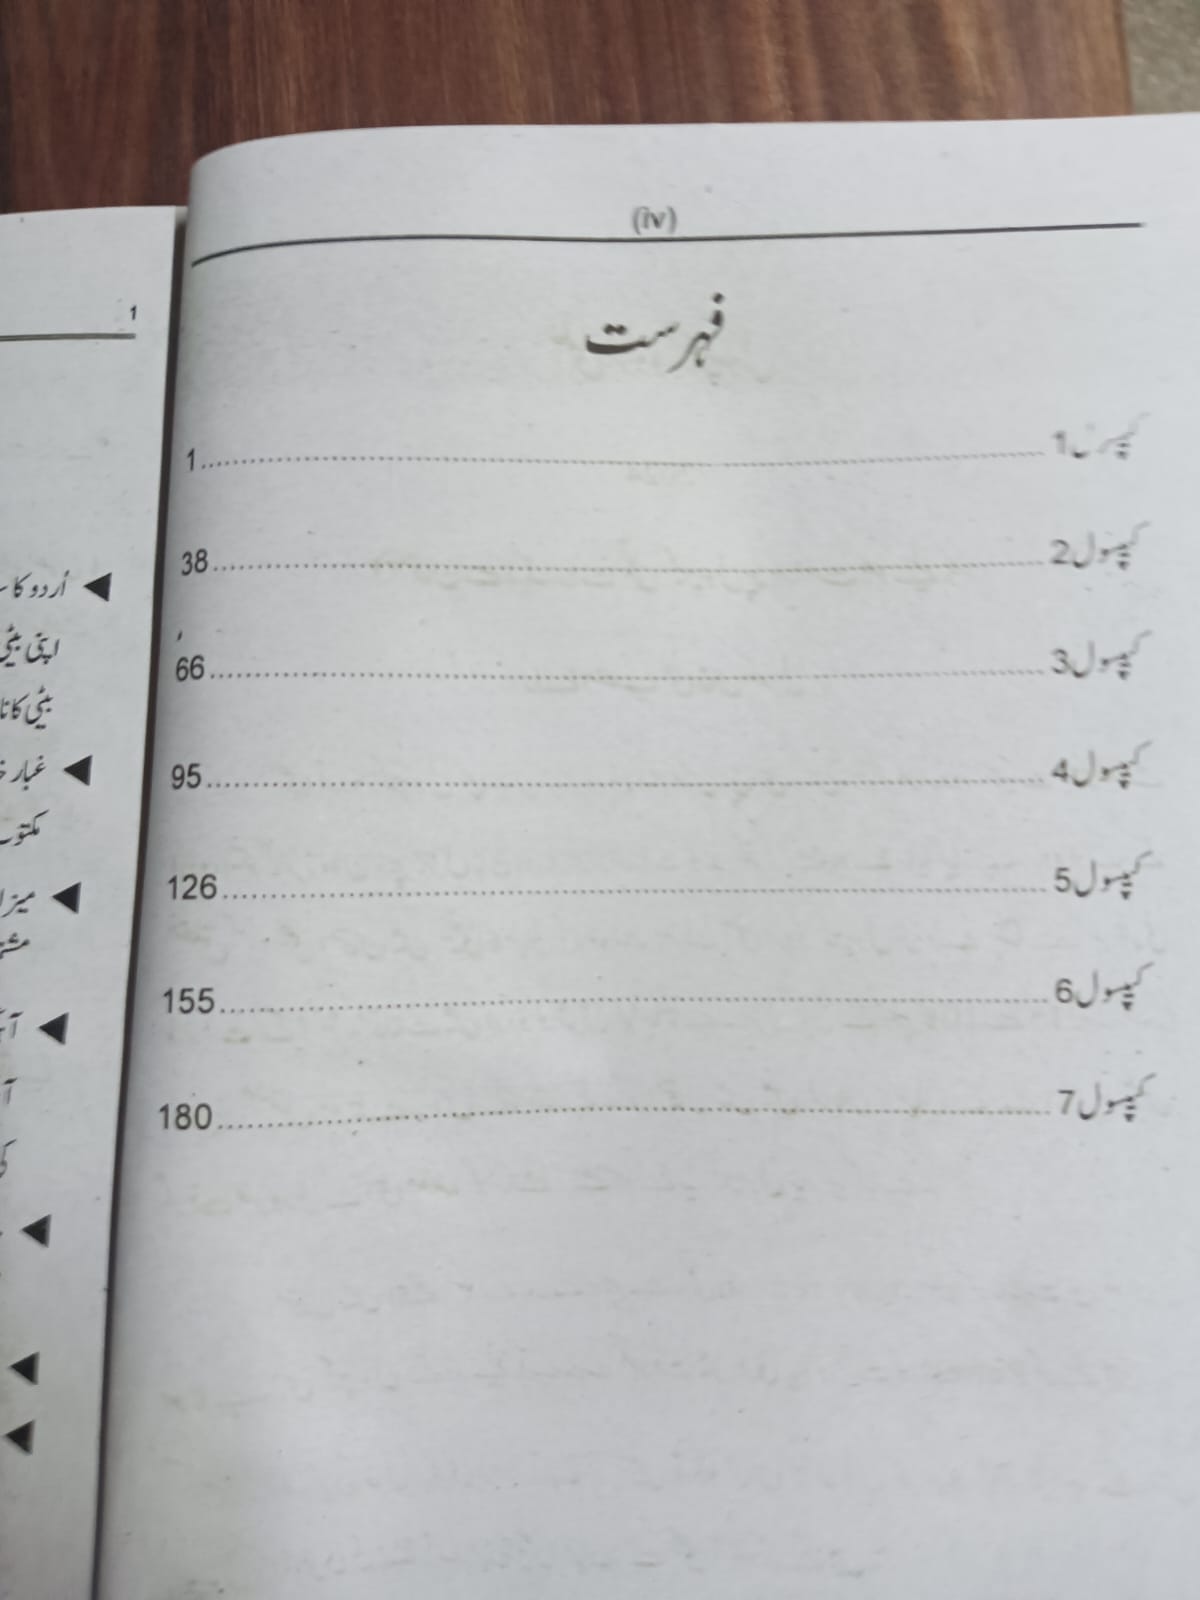 (iv)
فہرست
کیپسول 1 ........ 1
کیپسول 2 ........ 38
کیپسول 3 ........ 66
کیپسول 4 ........ 95
کیپسول 5 ........ 126
کیپسول 6 ........ 155
کیپسول 7 ........ 180
1
◀ اُردو کا
اپنی بیٹی
بیٹی کا
◀ غبار